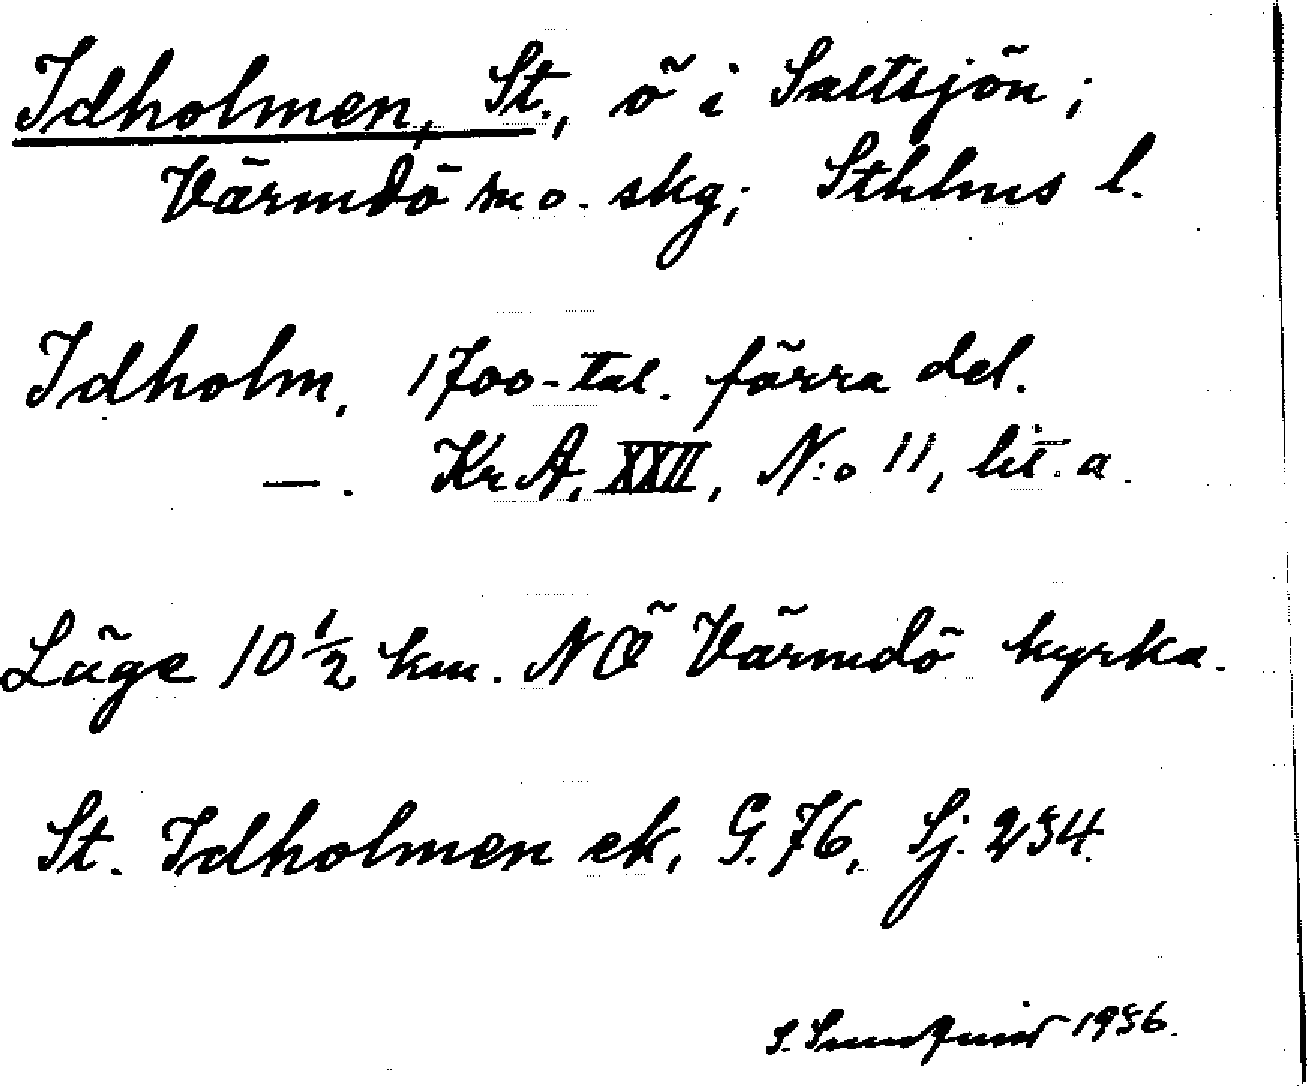 Idholmen, St., ö i Saltsjön;
Värmdö m o. skg; Sthlms l.
Idholm, 1700-tal. förra del.
—. Kr A, XXII, N:o 11, lit. a.
Läge 10 1/2 km. NÖ Värmdö kyrka.
St. Idholmen ek, G. 76, Sj. 254.
S. Sundquist 1956.